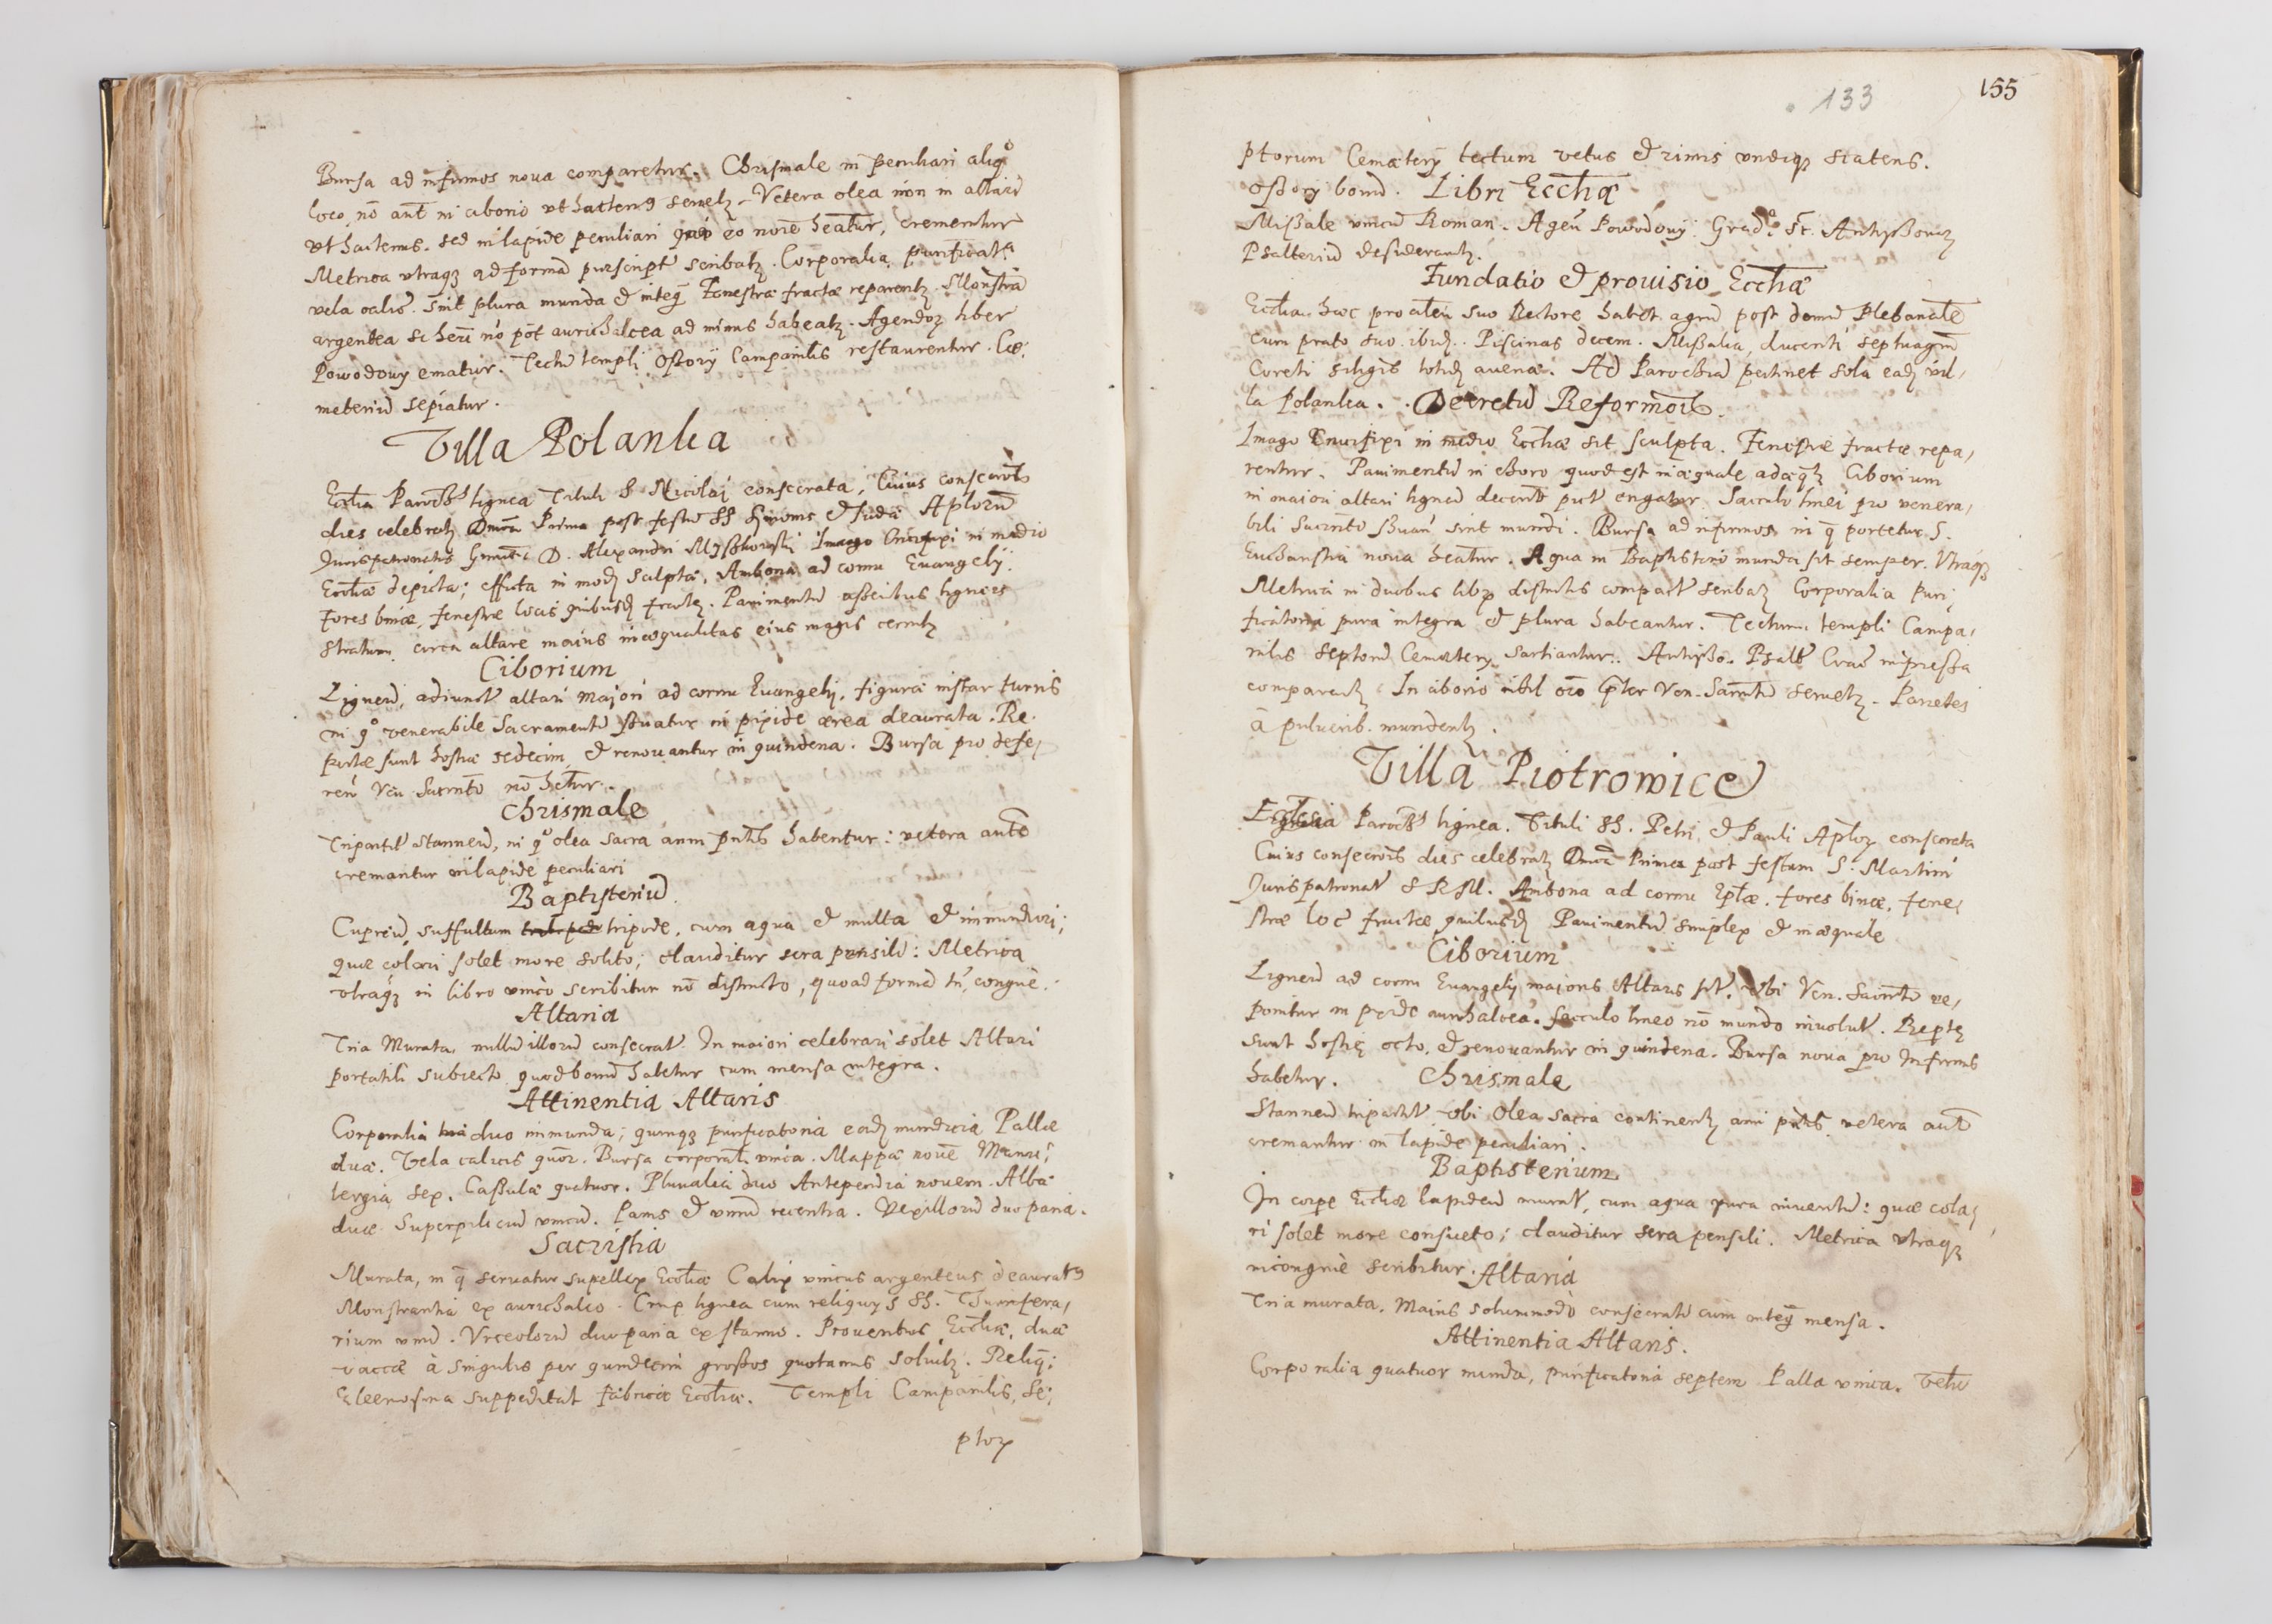 Bursa ad infirmos noua comparetur. Chrismale in peculiari aliqº
loco, nō aūt in ciborio vt hactenus seruetʒ. Vetera olea non in altari
vt hactenus. sed in lapide peculiari eo noīe heatur, crementur
Metrica vtraqʒ ad formā scribatʒ. Corporalia, purificat.
vela calic. sint plura munda & integ. Fenestræ fractæ reparentʒ. Monstrā
argentea si heri nō pōt aurichalcea ad minus habeatʒ. Agendoꝝ liber
Powodowy ematur. Tectū templi Ostorÿ Campanilis restaurentur. Cœ:
meteriū sepiatur.
Villa Polanka
Eccłia Paroch. lignea Tituli S. Nicolai consecrata, Cuius consecrōis
dies celebratʒ Dnīca Prima post festū SS Simonis & Judæ Aplorū
Jurispatronatus D. Alexandri Myszkowski Imago Crucifixi in medio
Eccłiæ depicta; efficta in modū sculptæ, Ambona ad cornu Euangelÿ.
Fores binæ, fenestræ locis quibusdʒ fractæ. Pauimentū asseribus ligneis
stratum circa altare maius inæqualitas eius magis cernitʒ
Ciborium
Ligneū, adiunct altari Majori ad cornu Euangelÿ, figura instar turris
in qº venerabile Sacramentū in pixide ærea deaurata. Re:
pertæ sunt hostiæ sedecim & renouantur in quindena. Bursa pro defe,
ren Ven Sacrmto nō hetur.
Chrismale
Tripartit stanneū, in qº olea sacra anni pntis habentur: vetera autē
cremantur in lapide peculiari
Baptisteriū
Cupreū, suffultum tripode, cum aqua & multa & immundiori;
quæ colari solet more solito; clauditur sera pensili: Metrica
vtraqʒ in libro vnico scribitur nō distincto, quoad formā tn, congruè.
Altaria
Tria Murata, nullū illorū consecrat In maiori celebrari solet Altari
portatili subiecto quod bonū habetur cum mensa integra.
Attinentia Altaris
Corporalia duo immunda; quinqʒ purificatoria eadʒ mundicia Pallæ
duæ. Vela calicis quor. Bursa corporal. vnica. Mappæ nouē Manu:
tergia sex. Casulæ quatuor. Pluuialia duo Antependia nouem. Albæ
duæ Superpiliciū vnicū. Panis & vinū recentia. Vexillorū duo paria.
Sacristia
Murata, in qͣ seruatur supellex Eccłiæ Calix vnicus argenteus deaurat9
Monstrantia ex aurichalco. Crux lignea cum reliquÿs SS. Thurifera,
rium vnū. Vrceolorū duo paria ex stanno. Prouentus Eccłiæ, duæ
vaccæ à singulis per quindecim grossos quotannis soluitʒ. Reliq:
Eleemosina suppeditat fabricæ Eccłiæ. Templi Campanilis, Se:
ptoꝝ
133
155
ptorum Cemæterÿ tectum vetus & rimis vndiqʒ scatens.
Ostorÿ bonū. Libri Eccłiæ
Missale vnicū Roman. Agen Powodowÿ. Antyphonaꝝ
Psalteriū desiderantʒ.
Fundatio & prouisio Eccłiæ
Eccłia hæc pro alen suo Rectore habet agrū post domū Plebanalē
cum prato suo ibidʒ. Piscinas decem. Missalia, ducenti septuagin
Coreti siliginis totidʒ auenæ. Ad Parochiā pertinet sola eadʒ vil,
la Polanka. Decretū Reformōis.
Imago Crucifixi in medio Eccłiæ sit sculpta. Fenestræ fractæ repa,
rentur. Pauimentū in choro quod est inæquale adæqʒ Ciborium
in maiori altari ligneū decenter pict erigatur. Sacculi linei pro venera,
bili Sacrmto sint mundi. Bursa ad infirmos in qͣ portetur S.
Eucharistia noua heatur. Aqua in Baptisterio munda sit semper. Vtraqʒ
Metrica in duobus libꝝ distinctis compact scribatʒ Corporalia Puri,
ficatoria pura integra & plura habeantur. Tectum templi Campa,
nilis septorū Cemæterÿ sartiantur. Antipho. Psalt Crac impressa
comparentʒ. In ciborio nihil oīo pter Ven. Sacrmtū seruetʒ. Parietes
à puluerib. mundentʒ.
Villa Piotrowice
Paroch. lignea. Tituli SS. Petri & Pauli Aploꝝ consecrata
Cuius consecrōis dies celebratʒ Dnīca Prima post festum S. Martini
Jurispatronat S R M. Ambona ad cornu Eplæ. Fores binæ, fene,
stræ loc fractæ quibusdʒ Pauimentū simplex & inæquale
Ciborium
Ligneū ad cornu Euangelÿ maioris Altaris sit, Vbi Ven. Sacrmtū re,
ponitur in pixide aurichalcea. sacculo lineo nō mundo inuolut. Reptę
sunt hostię octo, & renouantur in quindena. Bursa noua pro Infirmis
habetur. Chrismale
Stanneū tripartit vbi Olea sacra continentʒ anni pntis vetera autē
cremantur in lapide peculiari.
Baptisterium
In corpe Eccłiæ lapideū murat, cum aqua pura inuentū: quæ cola,
ri solet more consueto; clauditur sera pensili. Metrica vtraqʒ
incongruè scribitur. Altaria
Tria murata. Maius solummodò consecratū cum integ mensa.
Attinentia Altaris.
Corporalia quatuor munda, purificatoria septem Palla vnica. Velū